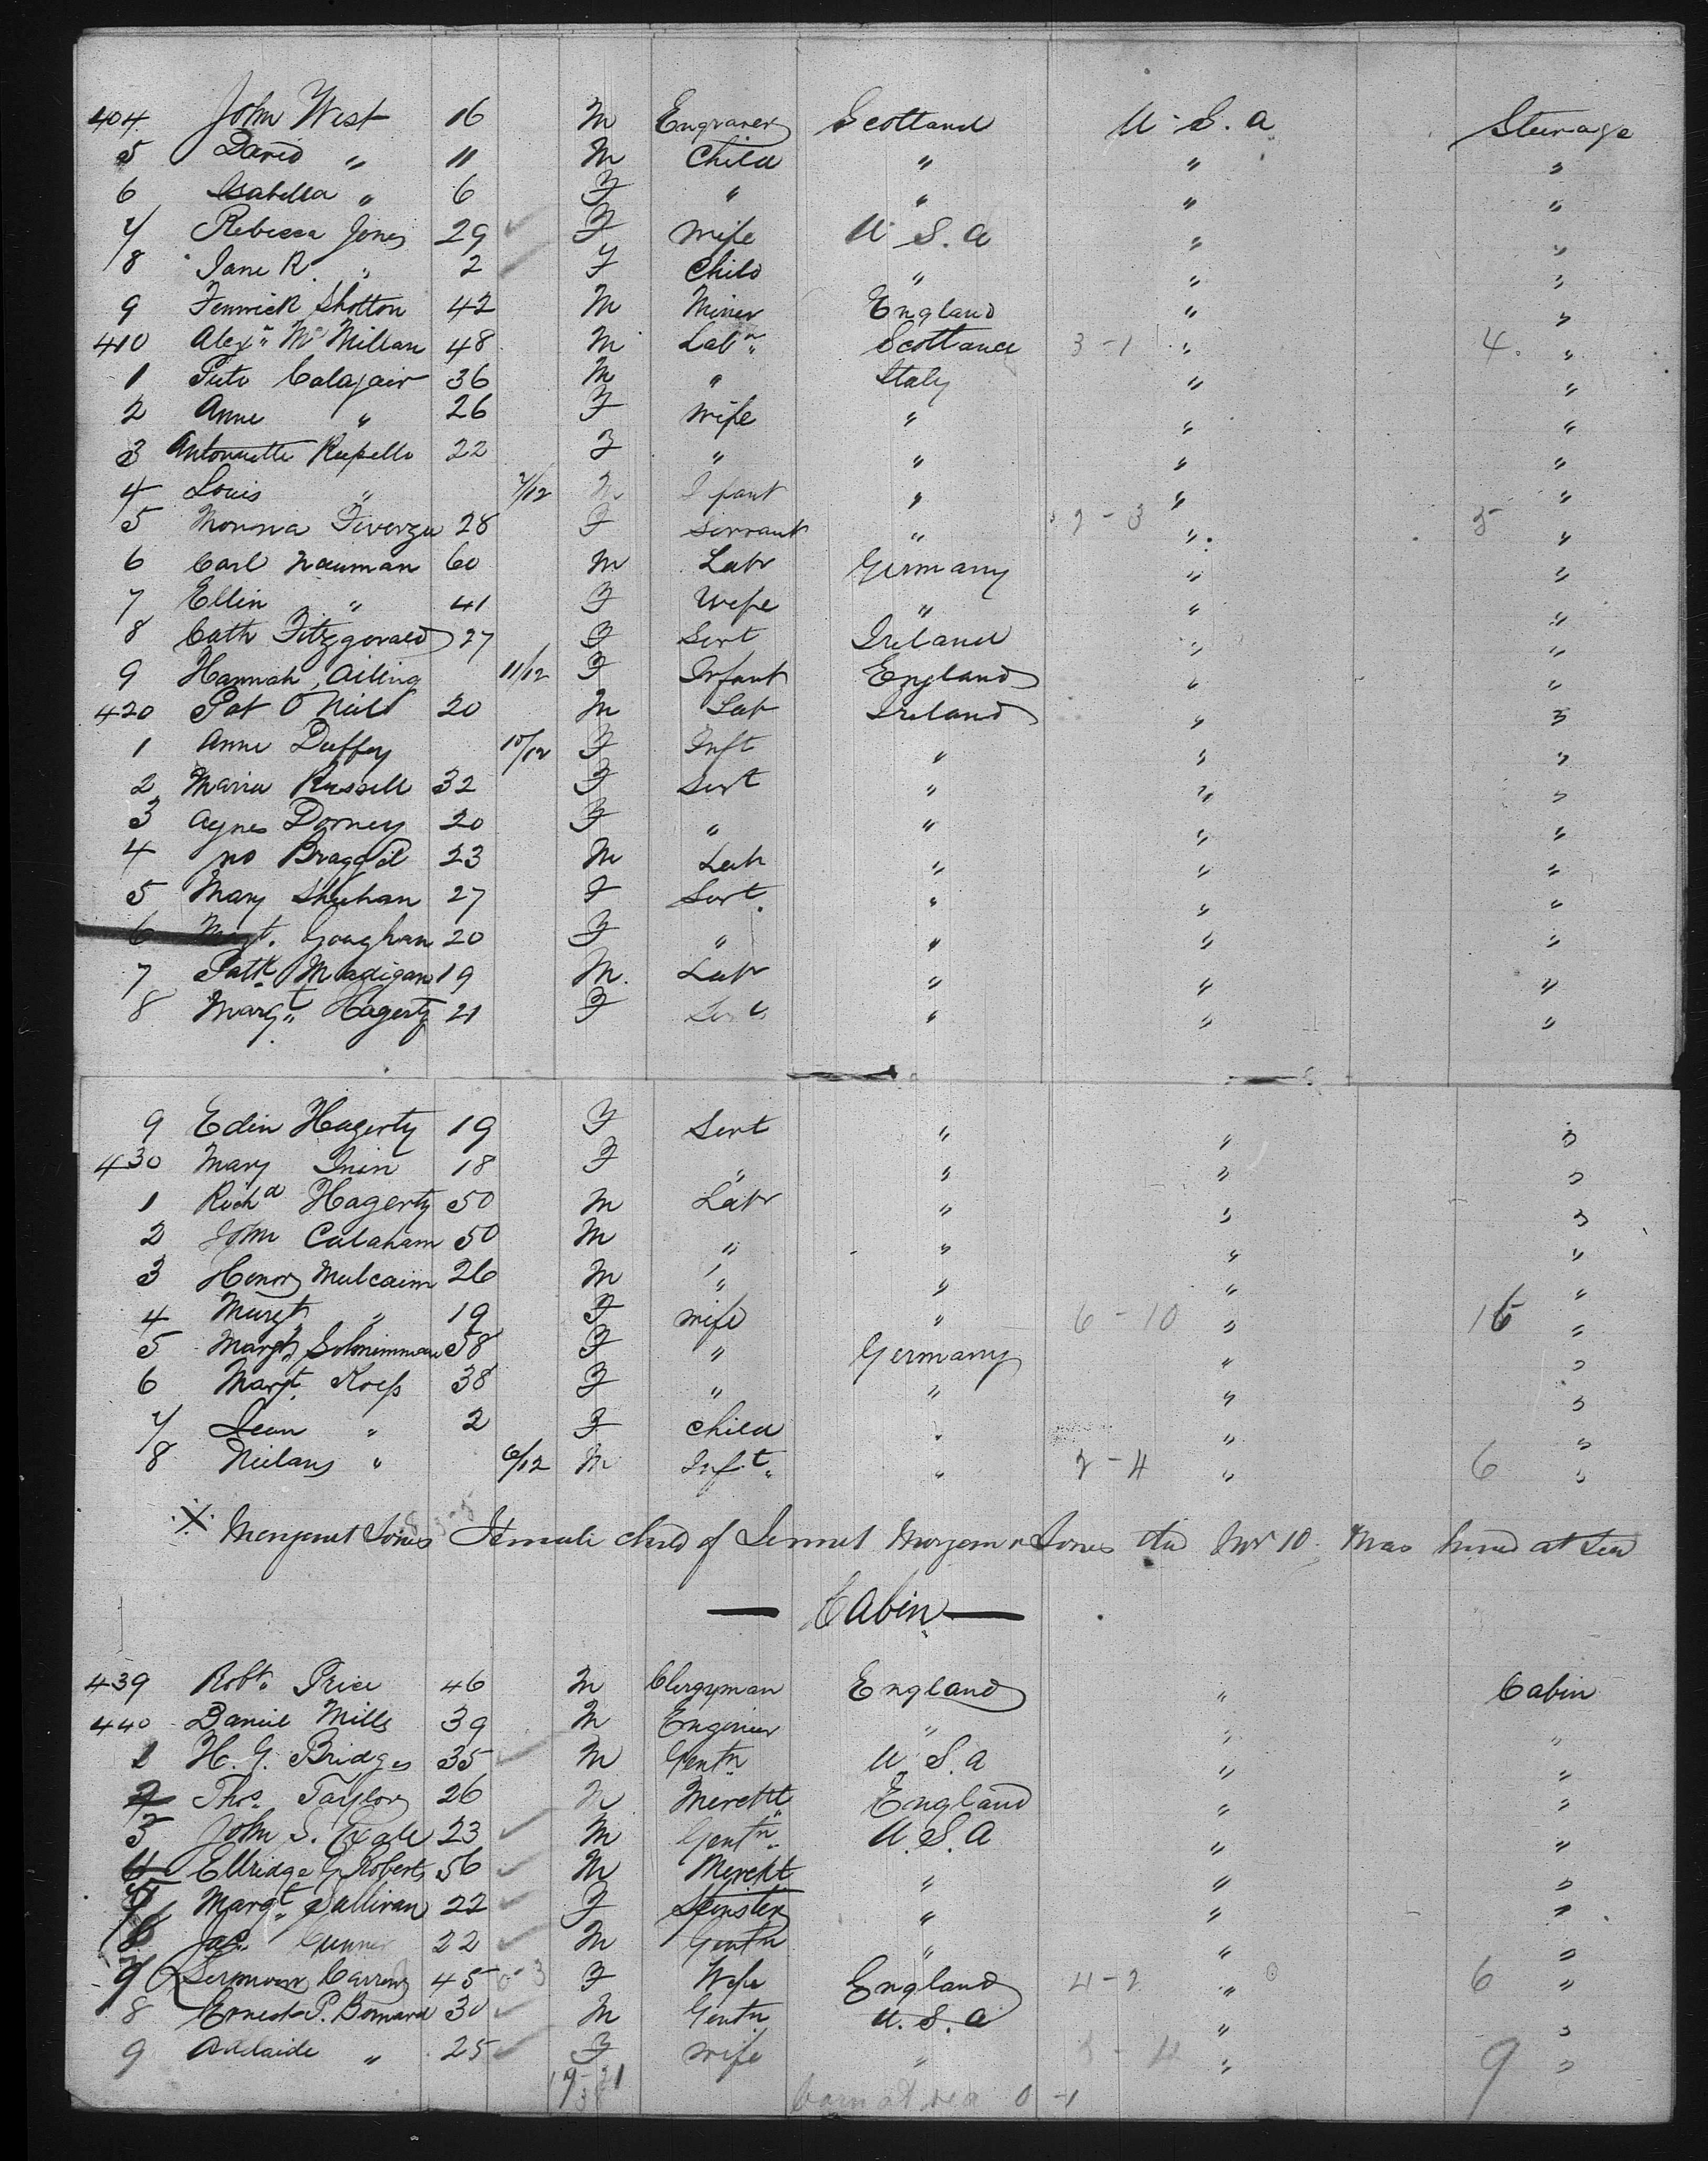 404 John West 16 M Engraver Scotland U. S. A Steerage
5 David " 11 M Child " " "
6 Isabella " 6 F " " " "
7 Rebecca Jones 29 F Wife U. S. A " "
8 Jane R. " 2 F Child " " "
9 Fenwick Shotton 42 M Miner England " "
410 Alexr Mc Millan 48 M Labr Scotland 3-1 " 4. "
1 36 M " Italy " "
2 Anne " 26 F Wife " " "
3 Antonnette Rupello 22 F " " " "
4 Louis " 7/12 M Infant " " "
5 28 F Servant " 2-3 " 5 "
6 Carl Nauman 60 M Labr Germany " "
7 Ellin " 41 F Wife " " "
8 Cath Fitzgerald 27 F Servt Ireland " "
9 Hannah Ailing 11/12 F Infant England " "
420 Pat O Neil 20 M Labr Ireland " "
1 Anne Duffey 10/12 F Inft " " "
2 Maria Russell 32 F Servt " " "
3 Agnes Dorney 20 F " " " "
4 Jno 23 M Labr " " "
5 Mary Sheehan 27 F Servt. " " "
6 Margt. Goughan 20 F " " " "
7 Patk Madigan 19 M. Labr " " "
8 Margt Hagerty 21 F Servt " " "
9 Edin Hagerty 19 F Servt " " "
430 Mary 18 F " " " "
1 Richd Hagerty 50 M Labr " " "
2 John Calaham 50 M " " " "
3 Henory Mulcaim 26 M " " " "
4 Margt " 19 F Wife " 6-10 " 16 "
5 Margt 58 F " Germany " "
6 Margt. Koess 38 F " " " "
7 " 2 F Child " " "
8 " 6/12 M Inft " 2-4 " 6 "
X Margaret Jones Female child of Jones Was born at Sea
— Cabin —
439 Robt. Price 46 M Clergyman England " Cabin
440 Daniel Mills 39 M Engineer " " "
1 H. G. Bridges 35 M Gentn U. S. A " "
2 Thos. Taylor 26 M Mercht England " "
3 John S. 23 M Gentn U. S. A " "
4 Elbridge G Roberts 56 M Mercht " " "
Margt Sullivan 22 F Spinster " " "
Jas. 22 M Gentn " " "
45 0-3 F Wife England 4-2 " 6 "
8 Ernest P. Bernard 30 M Gentn U. S. A " "
9 Adelaide " 25 F Wife " 3-4 " 9 "
born at sea 0-1